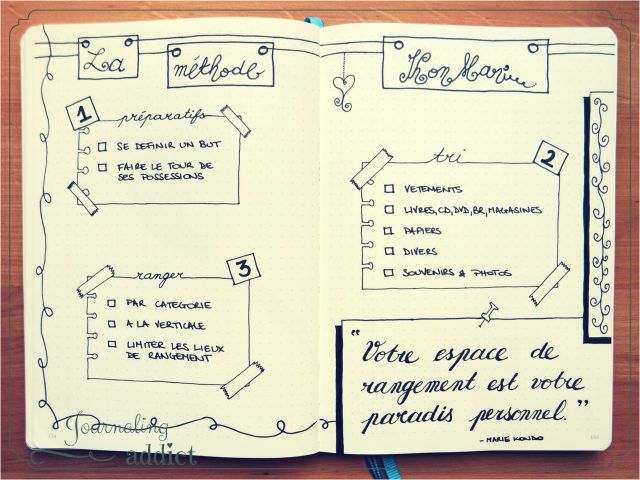 La méthode KonMari
1
préparatifs
SE DEFINIR UN BUT
FAIRE LE TOUR DE
SES POSSESSIONS
2
tri
VETEMENTS
LIVRES, CD, DVD, BR, MAGASINES
PAPIERS
DIVERS
SOUVENIRS & PHOTOS
3
ranger
PAR CATEGORIE
A LA VERTICALE
LIMITER LES LIEUX
DE RANGEMENT
"Votre espace de
rangement est votre
paradis personnel."
- MARIE KONDO
Journaling
addict